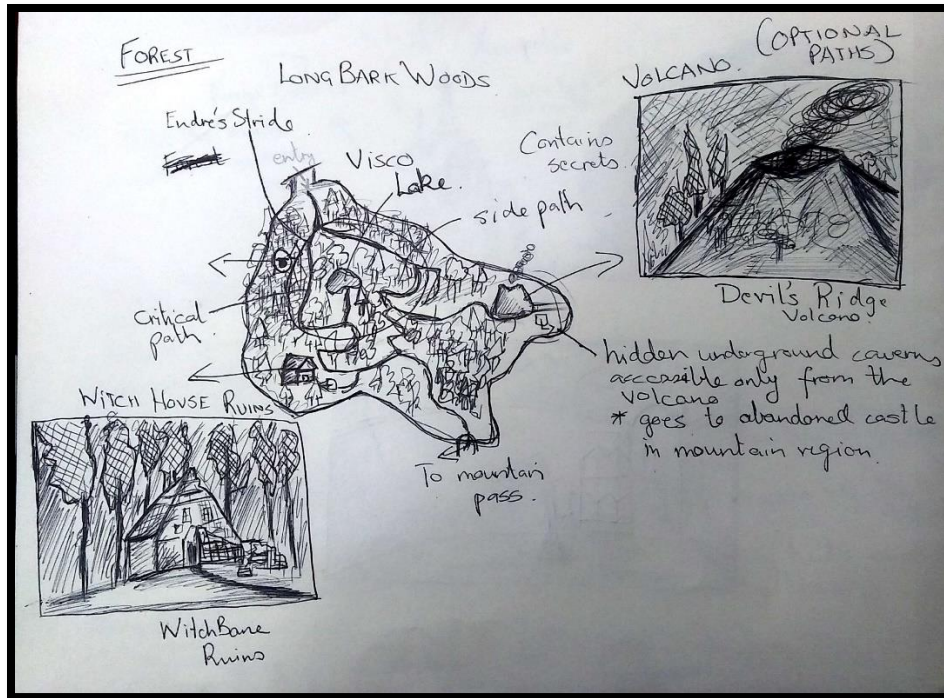 FOREST
(OPTIONAL
PATHS)
LONG BARK WOODS
VOLCANO.
Endre's Stride
entry
Visco
Lake.
Contains
secrets.
side path
Critical
path
Devil's Ridge
Volcano.
hidden underground caverns
accessible only from the
volcano
* goes to abandoned castle
in mountain region.
WITCH HOUSE RUINS
To mountain
pass.
WitchBane
Ruins